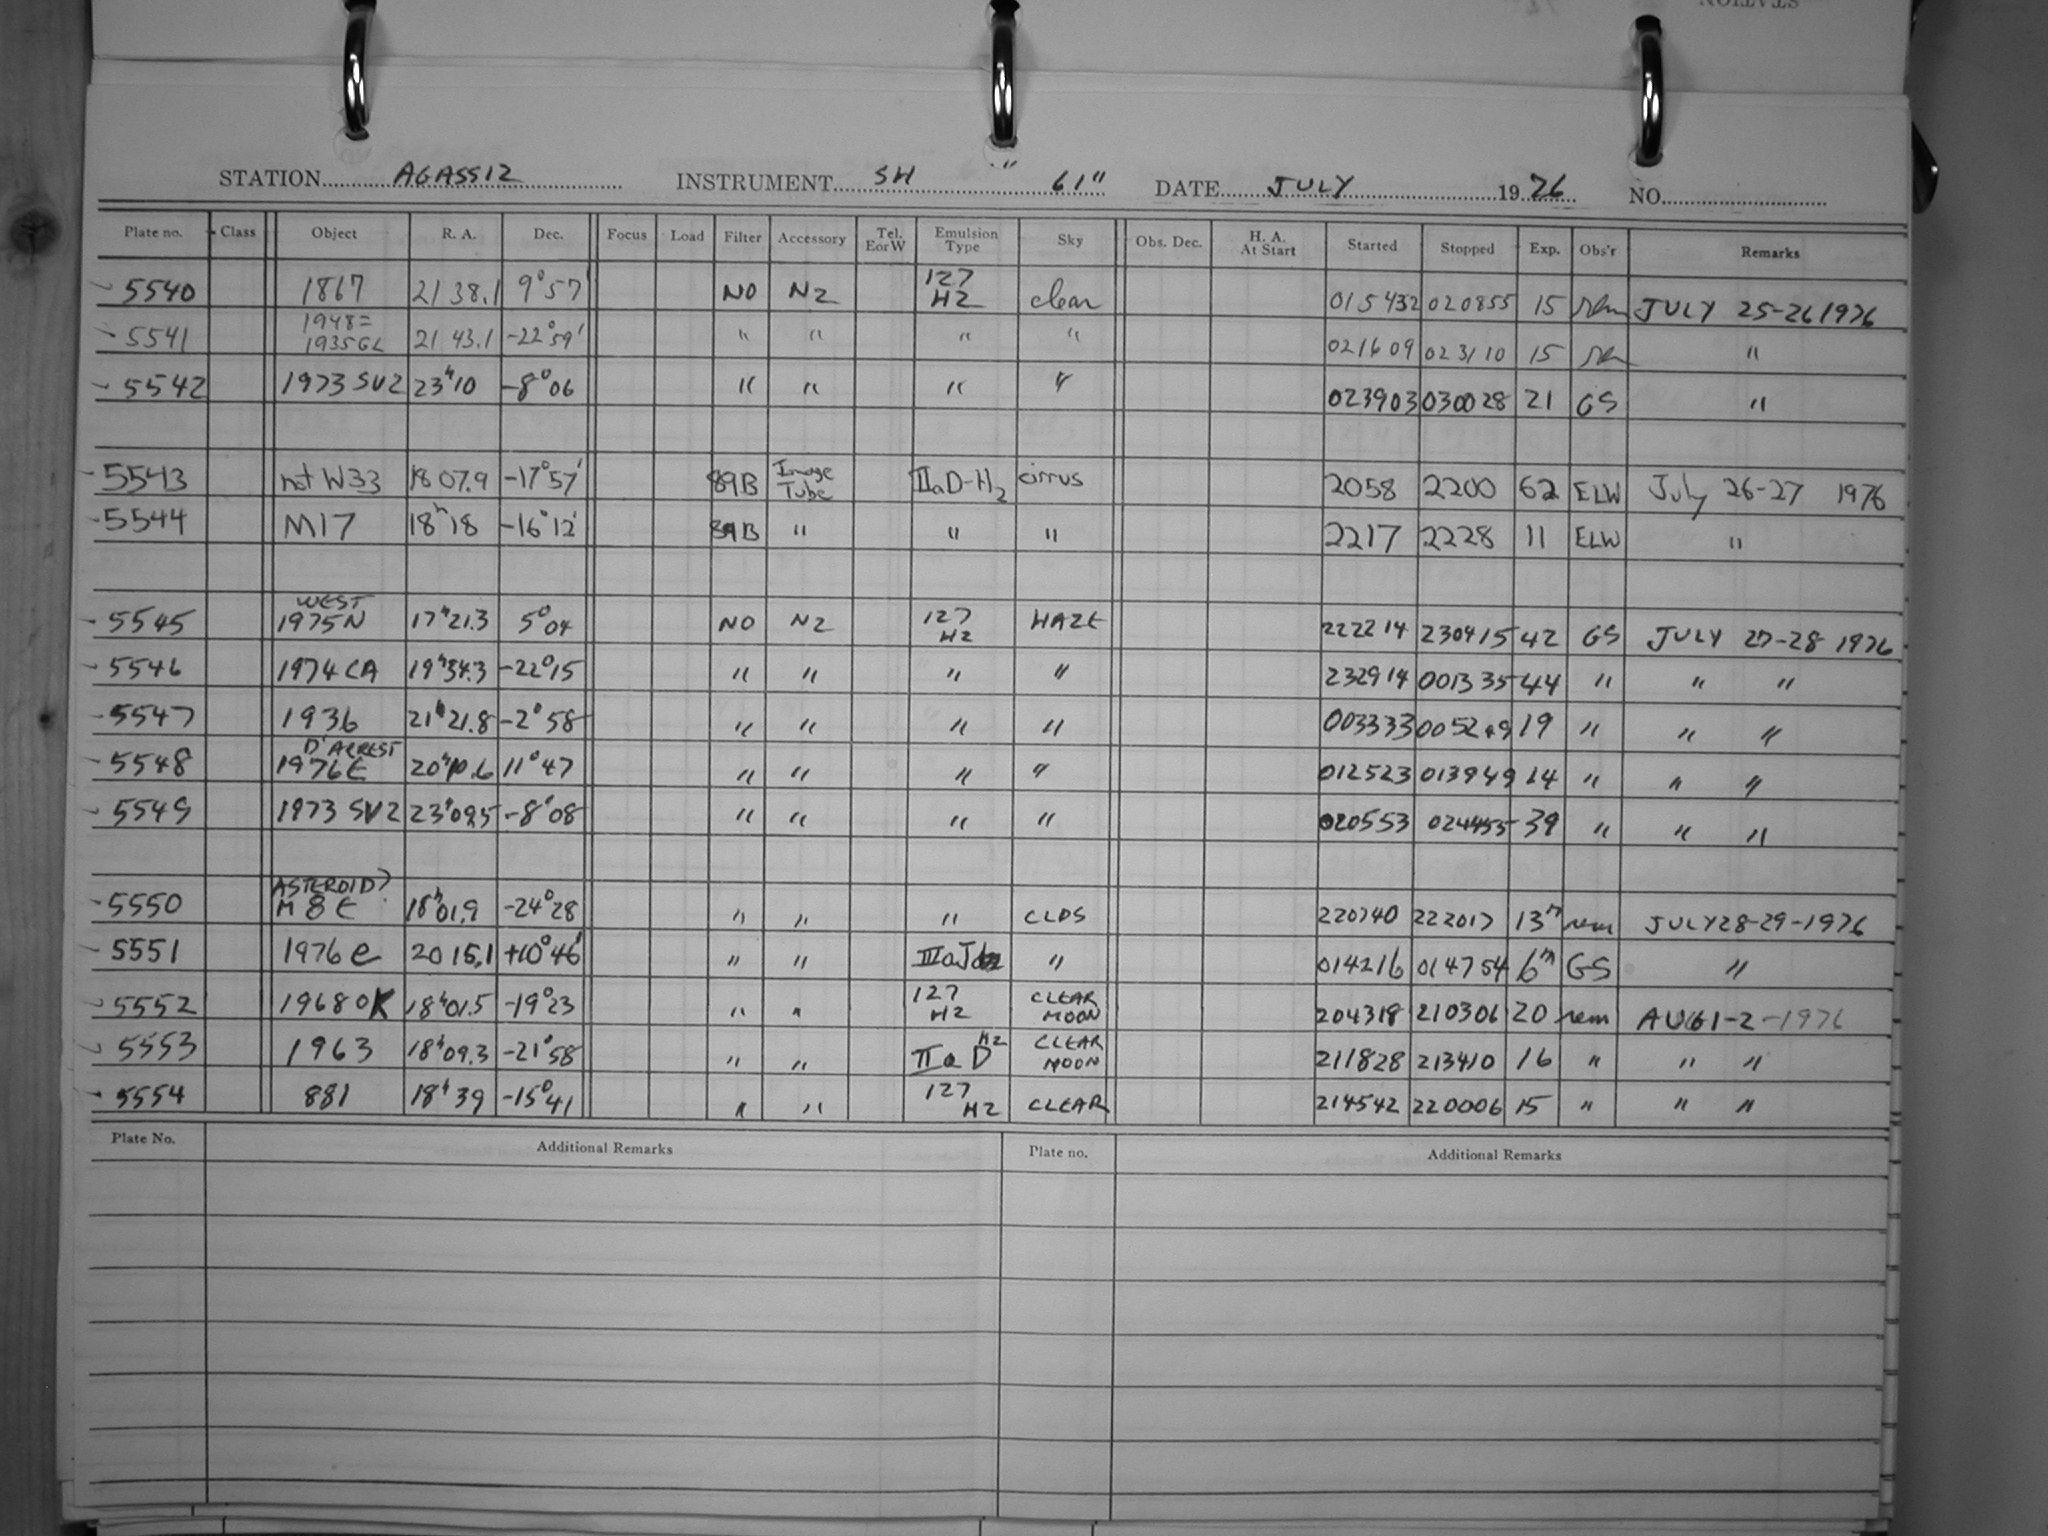 STATION
STATION AGASSIZ INSTRUMENT SH 61" DATE JULY 1976 NO.
Plate no. Class Object R. A. Dec. Focus Load Filter Accessory Tel. E or W Emulsion Type Sky Obs. Dec. H. A. At Start Started Stopped Exp. Obs'r Remarks
5540 1867 21 38.1 9°57' NO N2 127 H2 clear 015432 020855 15 rem JULY 25-26 1976
5541 1948= 1935GL 21 43.1 -22°59' " " " " 021609 023110 15 "
5542 1973 SVZ 23h10 -8°06 " " " " 023903 030028 21 GS "
5543 not W33 18 07.9 -17°57' 89B Image Tube IIaD-H2 cirrus 2058 2200 62 ELW July 26-27 1976
5544 M17 18h18 -16°12' 89B " " " 2217 2228 11 ELW "
5545 WEST 1975N 17h21.3 5°04 NO N2 127 H2 HAZE 222214 230415 42 GS JULY 27-28 1976
5546 1974 CA 19h54.3 -22°15 " " " " 232914 001335 44 " " "
5547 1936 21h21.8 -2°58 " " " " 003333 0052 19 " " "
5548 D'ARREST 1976E 20h10.6 11°47 " " " " 012523 013949 14 " " "
5549 1973 SVZ 23h09.5 -8°08 " " " " 020553 024455 39 " " "
5550 ASTEROID? M8E 18h01.9 -24°28 " " " CLDS 220740 222017 13m rem JULY 28-29-1976
5551 1976e 20 15.1 +10°46' " " IIIaJ " 014216 014754 6m GS "
5552 1968 OK 18h01.5 -19°23 " " 127 H2 CLEAR MOON 204318 210306 20 rem AUG 1-2-1976
5553 1963 18h09.3 -21°58 " " IIa D H2 CLEAR MOON 211828 213410 16 " " "
5554 881 18h39 -15°41 " " 127 H2 CLEAR 214542 220006 15 " " "
Plate No. Additional Remarks Plate no. Additional Remarks